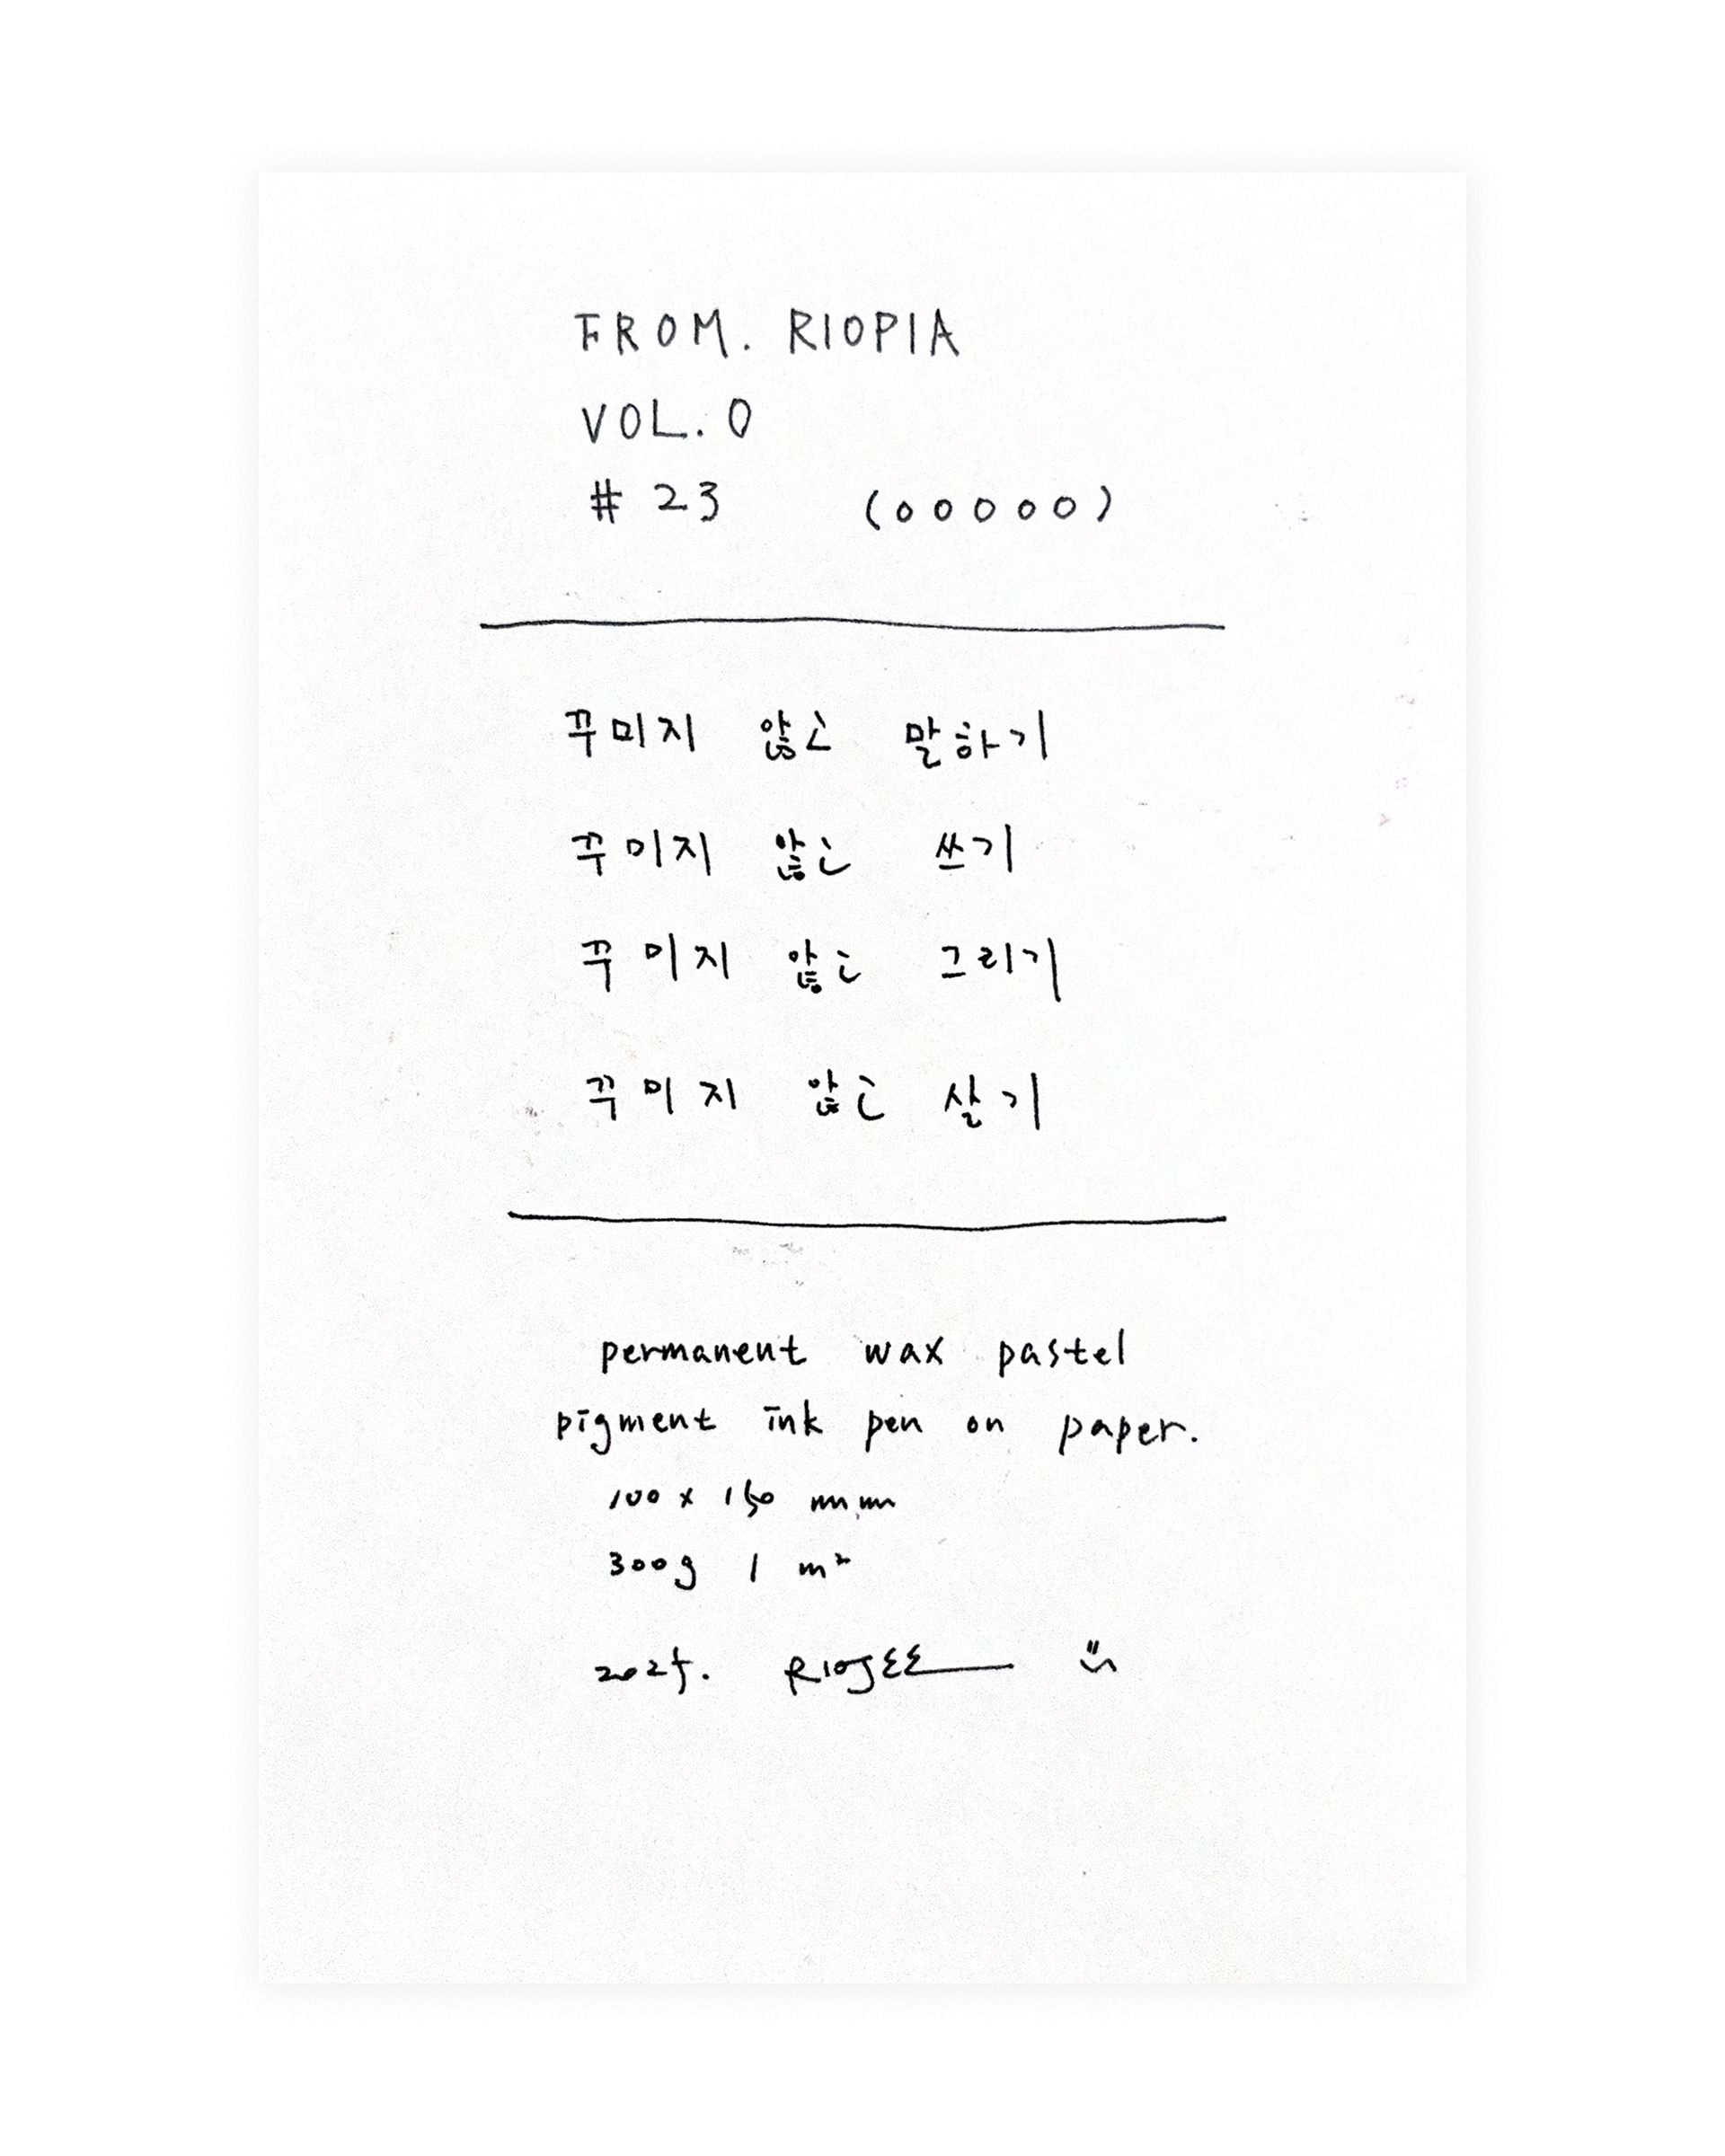 FROM. RIOPIA
VOL. 0
# 23 (00000)
꾸미지 않고 말하기
꾸미지 않고 쓰기
꾸미지 않고 그리기
꾸미지 않고 살기
permanent wax pastel
pigment ink pen on paper.
100 x 150 mm
300g / m²
2025. RIOJEE